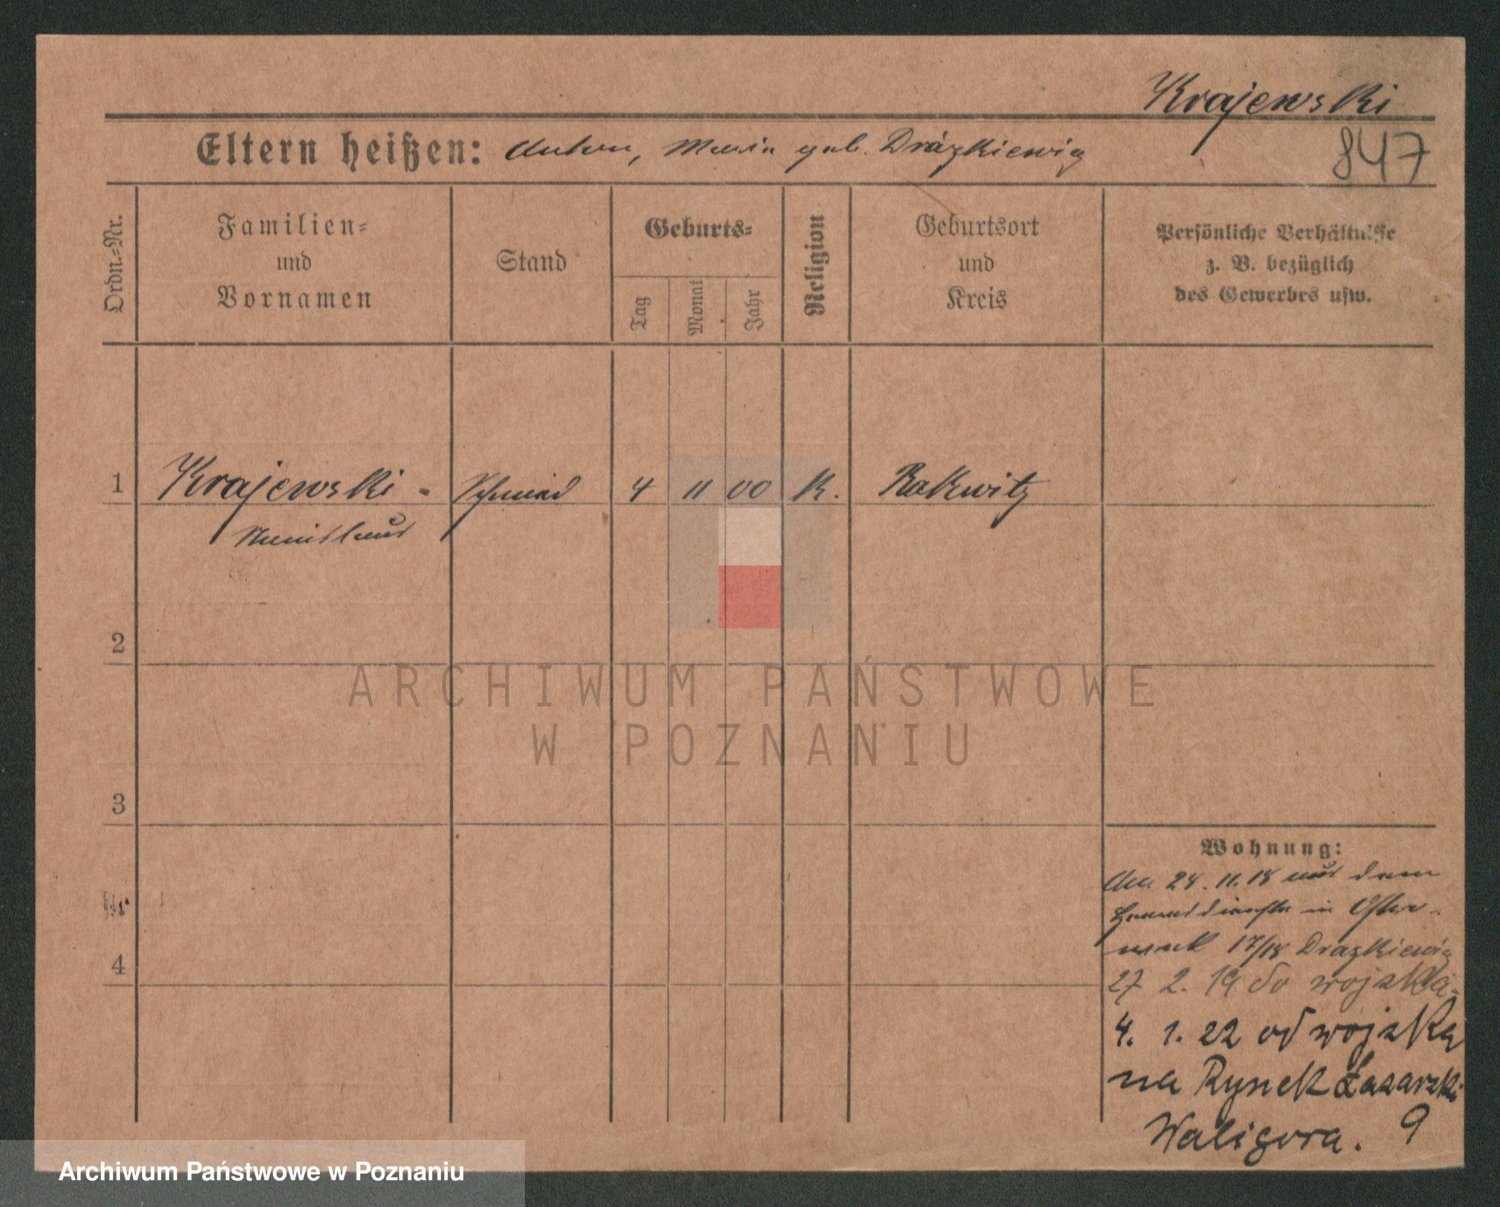 Krajewski
847
Eltern heißen: Anton, Maria geb. Drążkiewicz
Ordn.-Nr.
Familien-
und
Vornamen
Stand
Geburts-
Tag
Monat
Jahr
Religion
Geburtsort
und
Kreis
Persönliche Verhältnisse
z. B. bezüglich
des Gewerbes usw.
1 Krajewski - Schmied 4 11 00 K. Rakwitz
2
ARCHIWUM PAŃSTWOWE
W POZNANIU
3
Wohnung:
24. 11. 18 aus dem
in
17/18 Drazkiewicz
4
27 2. 19 do wojska
4. 1. 22 od wojska
na Rynek Łazarski
Waligora. 9
Archiwum Państwowe w Poznaniu